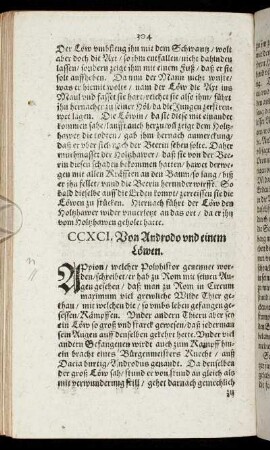 304
Der Löw vmbfieng ihn mit dem Schwantz / wolt
aber doch die Axt / so ihm entfallen / nicht dahinden
lassen / sondern zeigt ihm mit einem Fuß / daß er sie
solt auffheben. Da nun der Mann nicht wuste /
was er hiermit wolte / nam der Löw die Axt ins
Maul vnd fasset sie hart / reichet sie also ihm / führt
ihn hernacher zu seiner Höl / da die Jungen zerstrew-
wet lagen. Die Löwin / da sie diese mit einander
kommen sahe / laufft auch herzu / vnd zeigt dem Holtz-
hawer die
daß er sich hoch vor der Beerin sehen solte. Daher
muthmasset der Holtzhawer / daß sie von der Bee-
rin diesen schaden bekommen hatten / hawet derwe-
gen mit allen Kräfften an den Baum / so lang / biß
er jhn fellet / vnnd die Beerin herunder wirfft. So
bald dieselbe auff die Erden kompt / zerreissen sie die
Löwen zu stücken. Hiernach führt der Löw den
Holtzhawer wider vnuerletzt an das ort / da er ihn
vom Holtzhawen geholet hatte.
CCXCI. Von Androdo vnd einem
Löwen.
APpion / welcher Polyhistor genennet wor-
den / schreibet / er hab zu Rom mit seinen Au-
gen gesehen / daß man zu Rom in Circum
maximum viel grewliche Wilde Thier ge-
than / mit welchen die / so vmbs leben gefangen ge-
sessen / Kämpffen. Vnder andern Thiern aber sey
ein Löw so groß vnd starck gewesen / daß jederman
sein Augen auff denselben gekehrt hette. Vnder viel
andern Gefangenen wirdt auch zum Kampff hin-
ein bracht eines Bürgenmeisters Knecht / auß
Dacia bürtig / Androdus genandt. Da denselben
der groß Löw sah / stund er von stund an gleich als
mit verwunderung still / gehet darnach gemechlich
zu